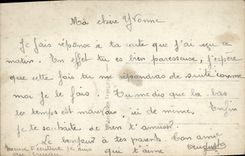 Ma chère Yvonne
Je fais réponse à ta carte que j'ai reçu ce
matin. En effet tu es bien paresseuse, j'espère
que cette fois tu me répondras de suite comme
moi je le fais. Tu me dis que là bas
le temps est mauvais, ici de même. Enfin
je te souhaite de bien t'amuser.
Le bonjour à tes parents. Ton amie
qui t'aime